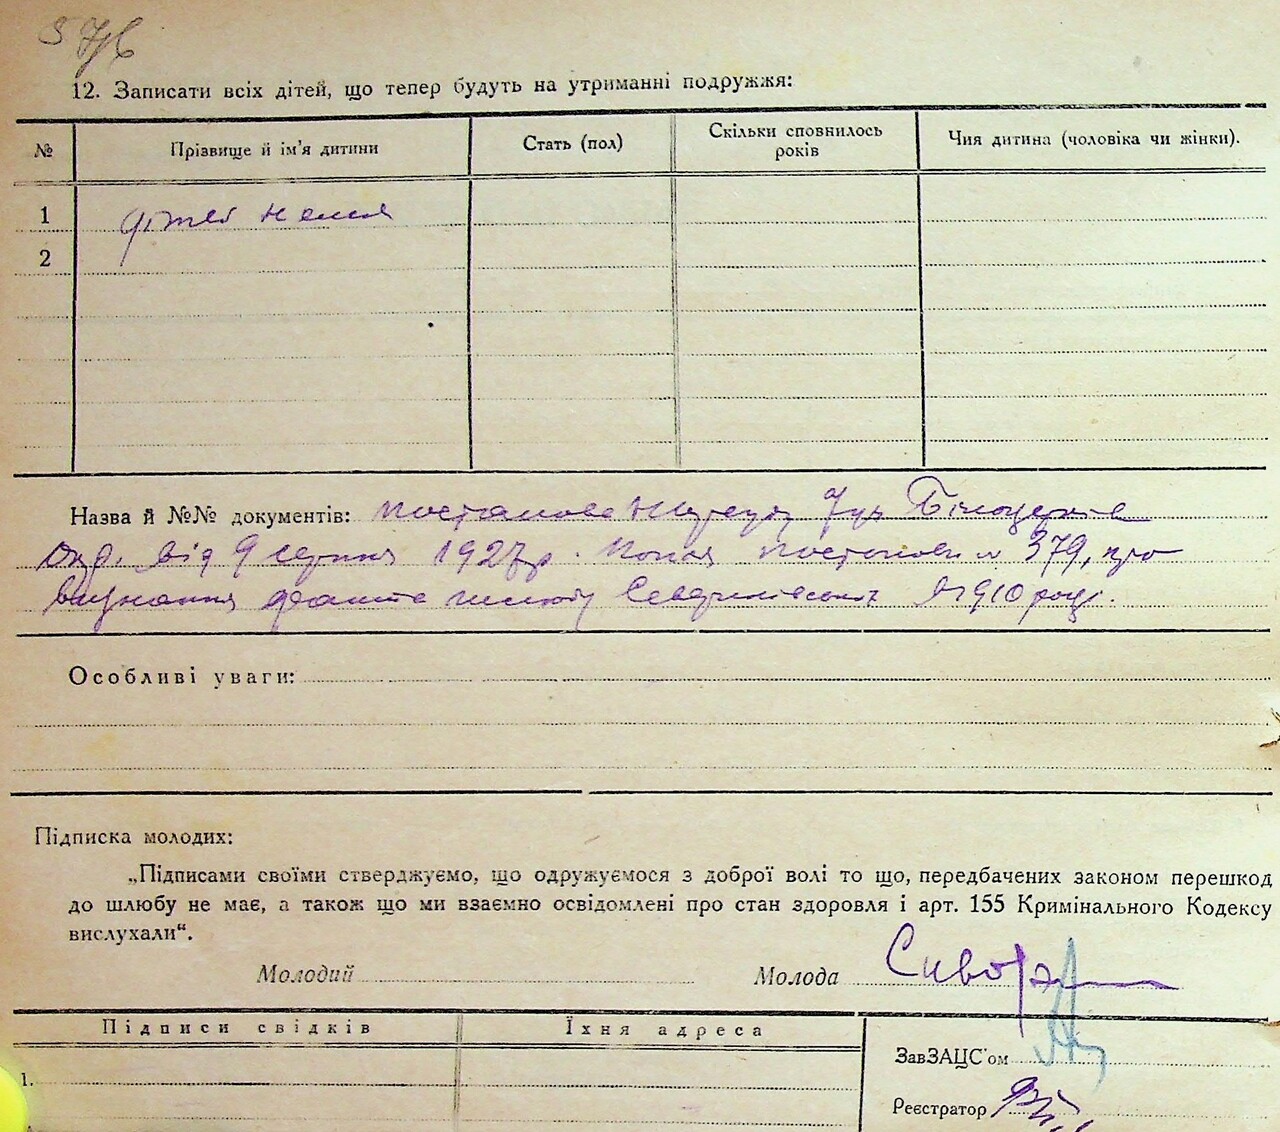 12. Записати всіх дітей, що тепер будуть на утриманні подружжя:
№ Прізвище й ім'я дитини Стать (пол) Скільки сповнилось років Чия дитина (чоловіка чи жінки).
1 дітей немая
2
Назва й №№ документів: постанова
від 9 серпня 1927 р. Копія постанови № 379, про
визнання шлюбу в 1910 році.
Особливі уваги:
Підписка молодих:
„Підписами своїми стверджуємо, що одружуємося з доброї волі то що, передбачених законом перешкод
до шлюбу не має, а також що ми взаємно освідомлені про стан здоровля і арт. 155 Кримінального Кодексу
вислухали“.
Молодий Молода
Підписи свідків Їхня адреса
ЗавЗАЦС'ом
1.
Реєстратор